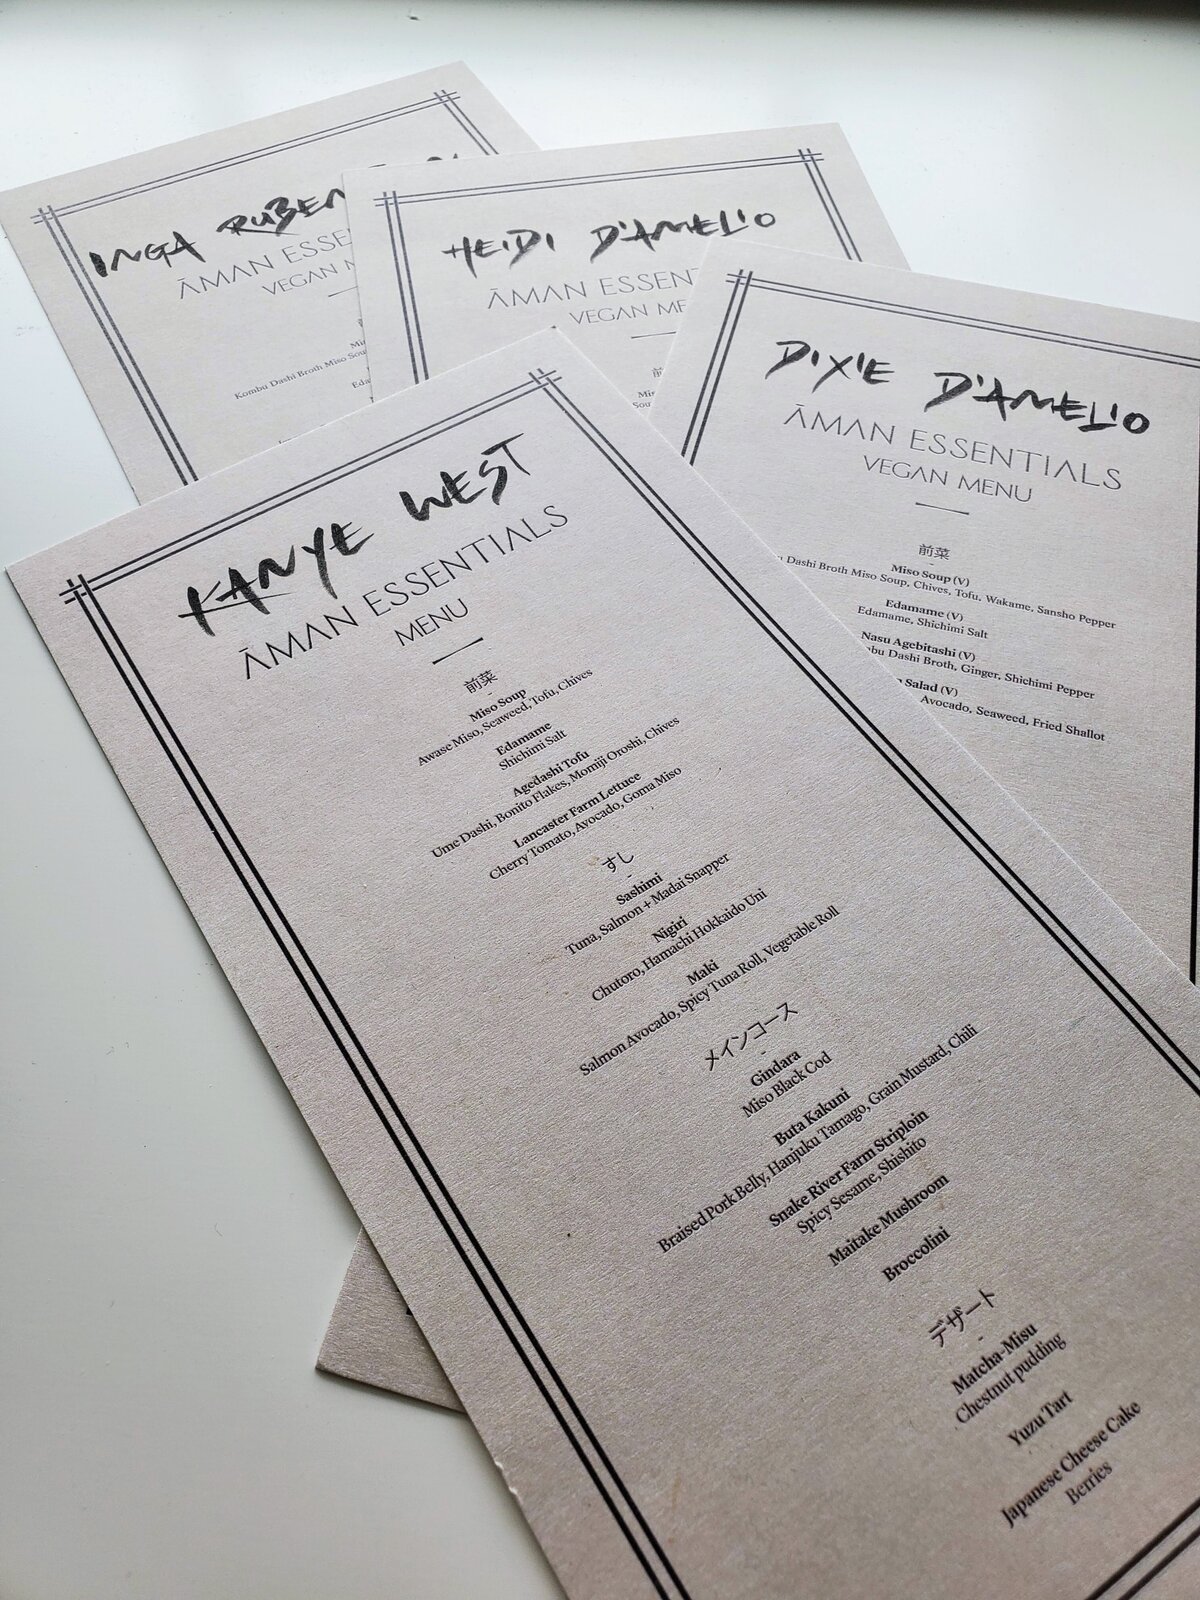 INGA RUBEN
ĀMAN ESSE
VEGAN
Kombu Dashi Broth Miso
HEIDI D'AMELIO
ĀMAN ESSENT
VEGAN ME
前
DIXIE D'AMELIO
ĀMAN ESSENTIALS
VEGAN MENU
前菜
Miso Soup (V)
Dashi Broth Miso Soup, Chives, Tofu, Wakame, Sansho Pepper
Edamame (V)
Edamame, Shichimi Salt
Nasu Agebitashi (V)
Dashi Broth, Ginger, Shichimi Pepper
Salad (V)
Avocado, Seaweed, Fried Shallot
KANYE WEST
ĀMAN ESSENTIALS
MENU
前菜
-
Miso Soup
Awase Miso, Seaweed, Tofu, Chives
Edamame
Shichimi Salt
Agedashi Tofu
Ume Dashi, Bonito Flakes, Momiji Oroshi, Chives
Lancaster Farm Lettuce
Cherry Tomato, Avocado, Goma Miso
すし
-
Sashimi
Tuna, Salmon + Madai Snapper
Nigiri
Chutoro, Hamachi Hokkaido Uni
Maki
Salmon Avocado, Spicy Tuna Roll, Vegetable Roll
メインコース
-
Gindara
Miso Black Cod
Buta Kakuni
Braised Pork Belly, Hanjuku Tamago, Grain Mustard, Chili
Snake River Farm Striploin
Spicy Sesame, Shishito
Maitake Mushroom
Broccolini
デザート
-
Matcha-Misu
Chestnut pudding
Yuzu Tart
Japanese Cheese Cake
Berries